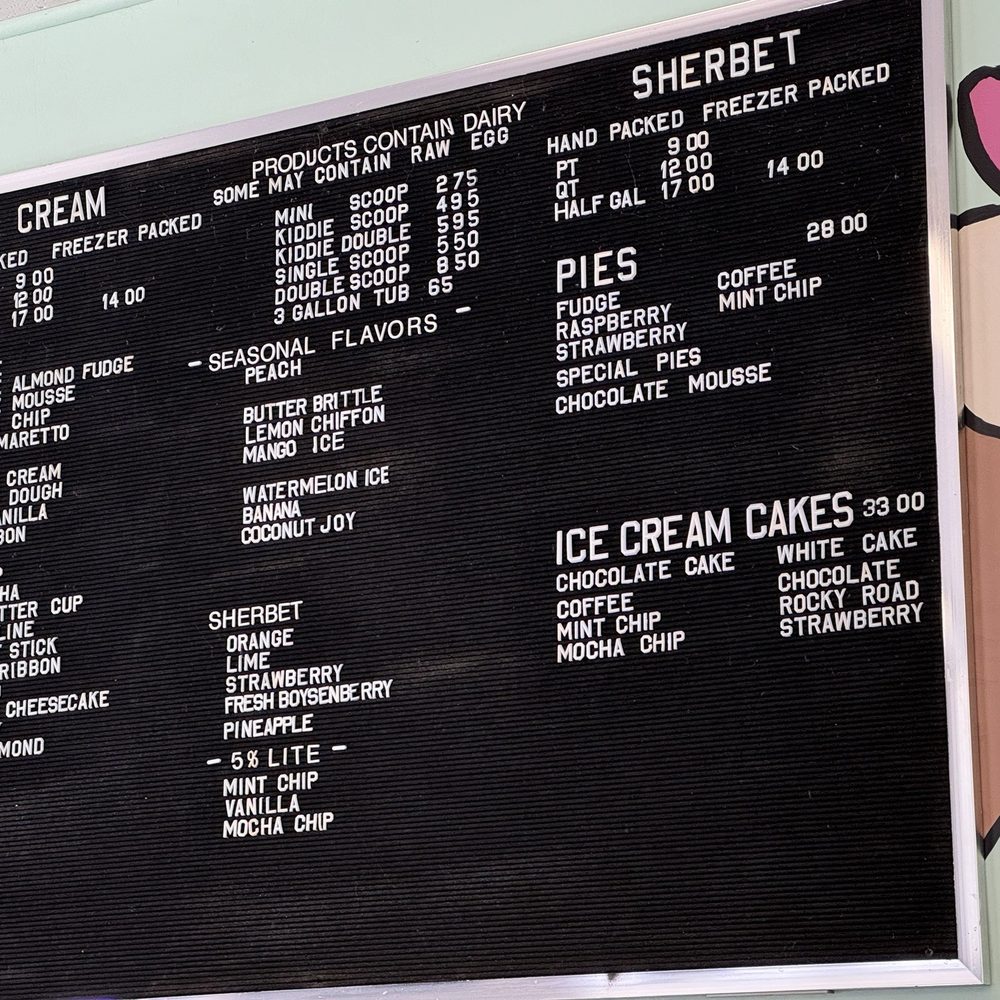 CREAM
FREEZER PACKED
9 00
12 00 14 00
17 00
ALMOND FUDGE
MOUSSE
CHIP
CREAM
DOUGH
CUP
STICK
RIBBON
CHEESECAKE
PRODUCTS CONTAIN DAIRY
SOME MAY CONTAIN RAW EGG
MINI SCOOP 2 75
KIDDIE SCOOP 4 95
KIDDIE DOUBLE 5 95
SINGLE SCOOP 5 50
DOUBLE SCOOP 8 50
3 GALLON TUB 65
- SEASONAL FLAVORS -
PEACH
BUTTER BRITTLE
LEMON CHIFFON
MANGO ICE
WATERMELON ICE
BANANA
COCONUT JOY
SHERBET
ORANGE
LIME
STRAWBERRY
FRESH BOYSENBERRY
PINEAPPLE
- 5% LITE -
MINT CHIP
VANILLA
MOCHA CHIP
SHERBET
HAND PACKED FREEZER PACKED
PT 9 00
QT 12 00 14 00
HALF GAL 17 00
PIES 28 00
FUDGE COFFEE
RASPBERRY MINT CHIP
STRAWBERRY
SPECIAL PIES
CHOCOLATE MOUSSE
ICE CREAM CAKES 33 00
CHOCOLATE CAKE WHITE CAKE
COFFEE CHOCOLATE
MINT CHIP ROCKY ROAD
MOCHA CHIP STRAWBERRY